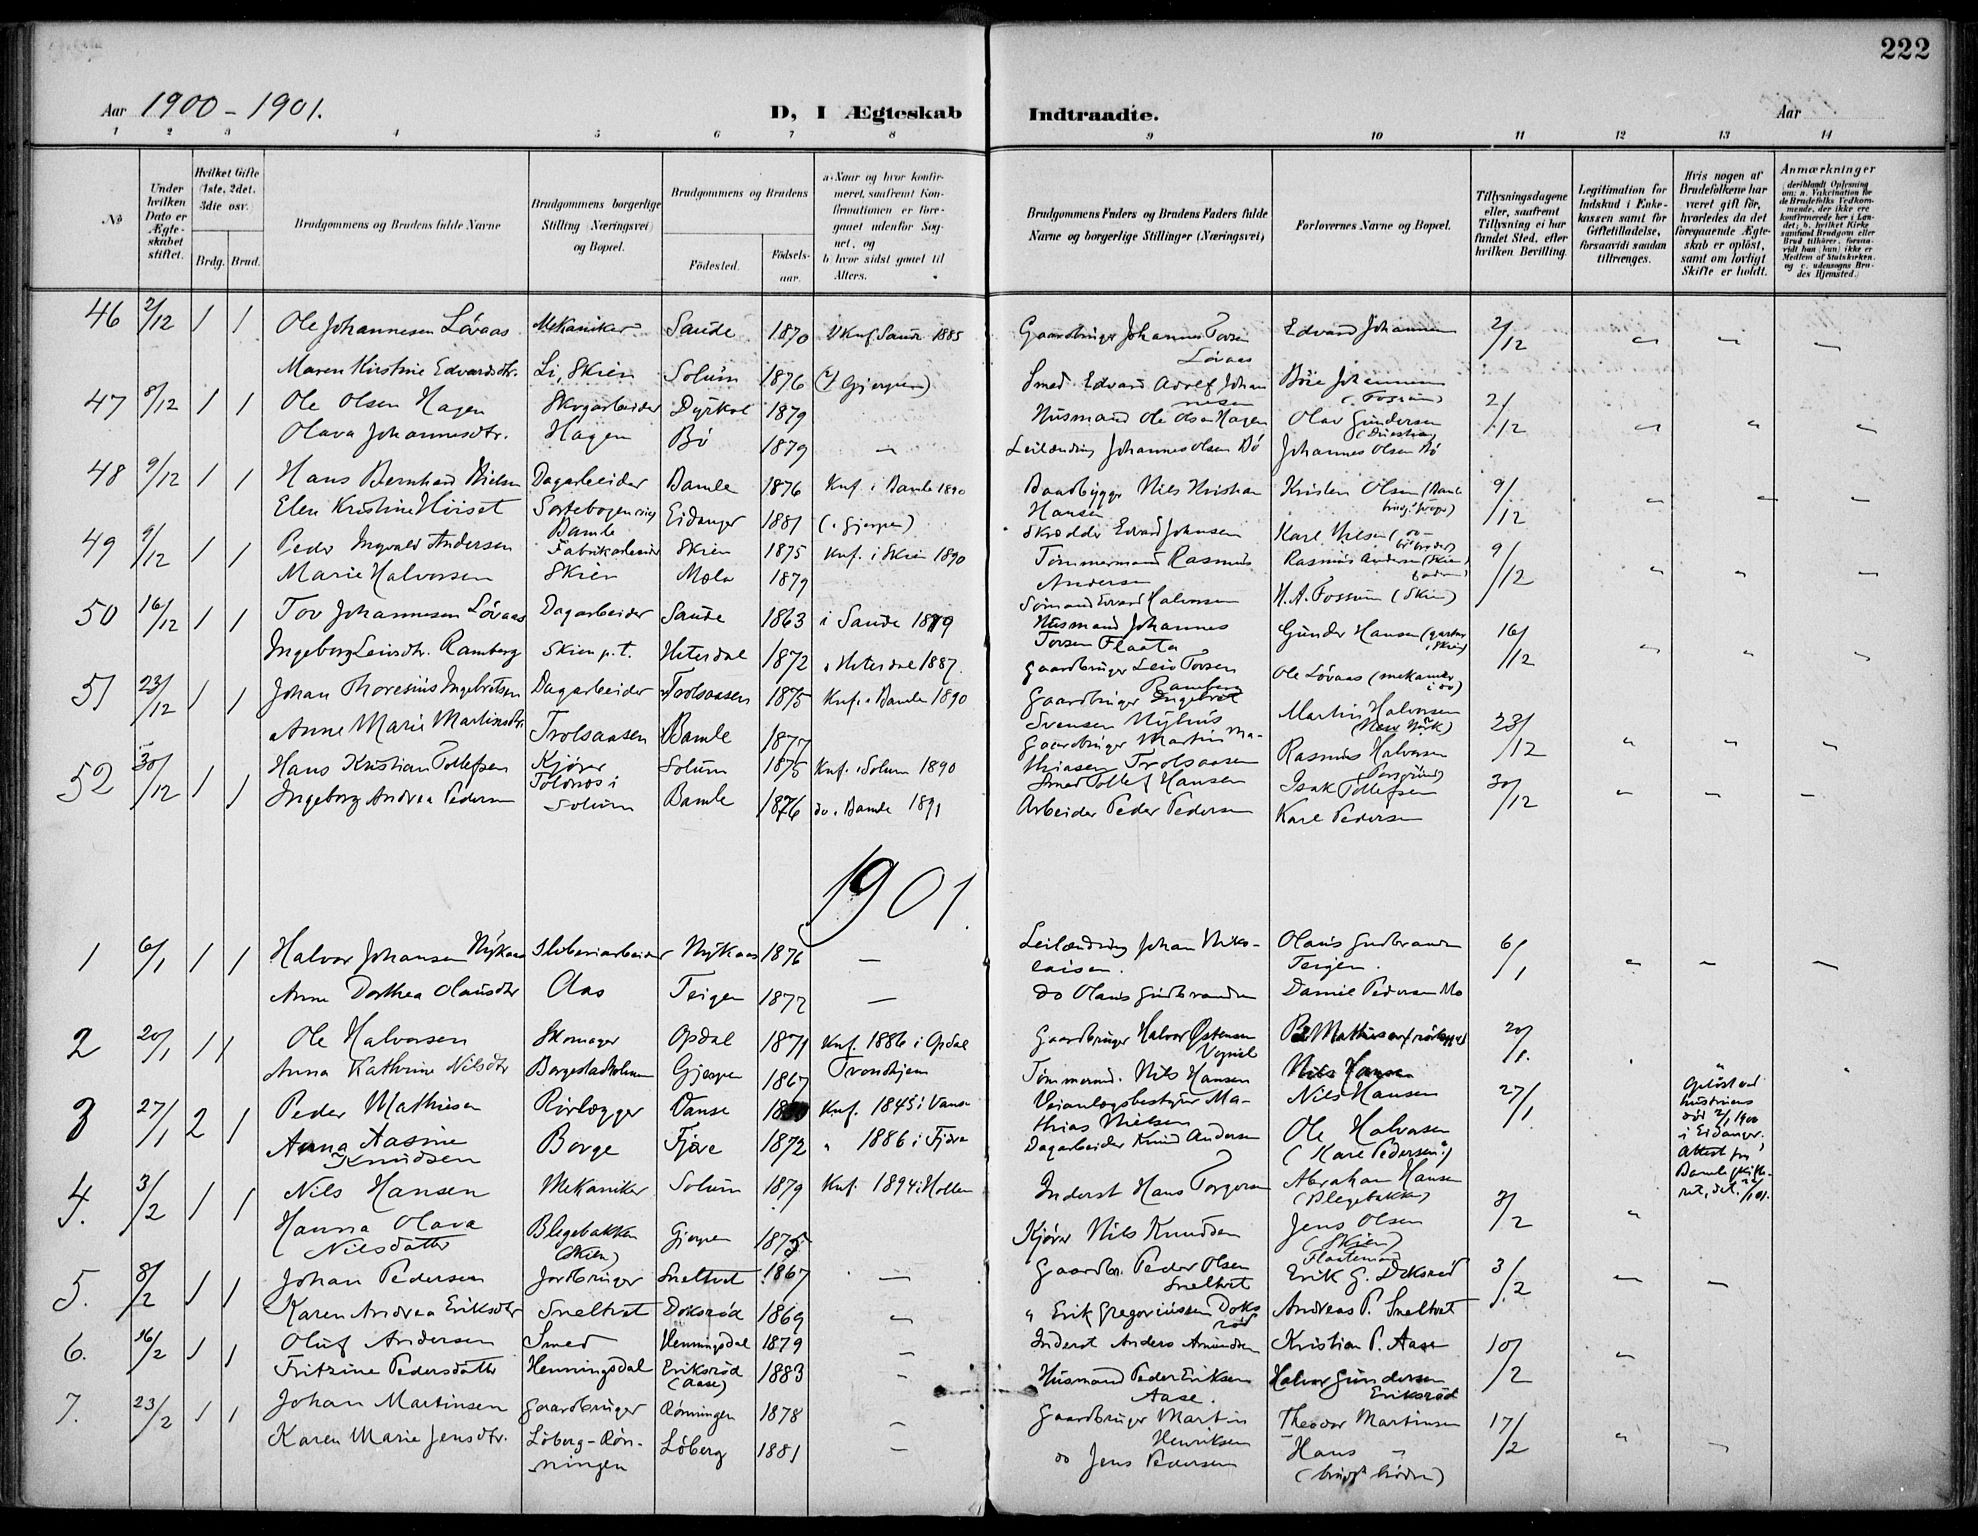 222
Aar 1900 - 1901.
D, I Ægteskab Indtraadte.
Aar
1 2 3 4 5 6 7 8 9 10 11 12 13 14
No
Under hvilken Dato er Ægte-skabet stiftet.
Hvilket Gifte (1ste, 2det, 3die osv.)
Brdg. Brud.
Brudgommens og Brudens fulde Navne
Brudgommens borgerlige Stilling (Næringsvei) og Bopæl.
Brudgommens og Brudens
Fødested.
Fødsels-aar.
a. Naar og hvor konfir-meret, saafremt Kon-firmationen er fore-gaaet udenfor Sog-net, og
b. hvor sidst gaaet til Alters.
Brudgommens Faders og Brudens Faders fulde Navne og borgerlige Stillinger (Næringsvei)
Forlovernes Navne og Bopæl.
Tillysningsdagene eller, saafremt Tillysning ei har fundet Sted, efter hvilken Bevilling.
Legitimation for Indskud i Enke-kassen samt for Giftetilladelse, forsaavidt saadan tiltrænges.
Hvis nogen af Brudefolkene har været gift før, hvorledes da det foregaaende Ægte-skab er opløst, samt om lovligt Skifte er holdt.
Anmærkninger
46 2/12 1 1 Ole Johannesen Løvaas Mekaniker Saude 1870 Knf. Saude 1885 Gaardbruger Johannes Torsen Løvaas Edvard Johannesen 2/12
Maren Kirstine Edvardsdtr. Li, Skien Solum 1876 (Gjerpen) Smed Edvard Adolf Johannesen Johannesen
47 8/12 1 1 Ole Olsen Hagen Skogarbeider Dyrkol 1879 Husmand Ole Olsen Hagen Olav Gundersen 2/12
Olava Johannesdtr. Hagen Bø 1879 — Leilænding Johannes Olsen Bø Johannes Olsen Bø
48 9/12 1 1 Hans Bernhard Nielsen Dagarbeider Bamle 1876 Knf. i Bamle 1890 Baadbygger Nils Kristian Hansen Kristen Olsen (Bamle 9/12
Elen Kristine Hirset Eidanger 1881 (i Gjerpen) Skrædder Edvard Johansen Karl Nilsen
Bamle
49 9/12 1 1 Peder Ingvald Andersen Fabrikarbeider Skien 1875 Knf. i Skien 1890 Tømmermand Rasmus Andersen Rasmus Andersen (Skien) 9/12
Marie Halvorsen Skien Mæla 1879 Sømand Edvard Halvorsen H. A. Fossum (Skien)
50 16/12 1 1 Tov Johannesen Løvaas Dagarbeider Saude 1863 i Saude 1879 Husmand Johannes Torsen Flaata Gunder Hansen 16/12
Ingeborg Leivsdtr. Ramberg Skien p.t. Hiterdal 1872 i Hiterdal 1887. Gaardbruger Leiv Torsen Ramberg Ole Løvaas (mekaniker
51 23/12 1 1 Johan Thoresius Ingebretsen Dagarbeider Trolsaasen 1875 Knf. i Bamle 1890 Gaardbruger Ingebret Svensen Nyhus Martin Halvorsen (New York) 23/12
Anne Marie Martinsdtr. Trolsaasen Bamle 1877 Gaardbruger Martin Mathiasen Trolsaasen Rasmus Halvorsen
52 30/12 1 1 Hans Kristian Tollefsen Kjører Solum 1875 Knf. i Solum 1890 Smed Tollef Hansen Isak Tollefsen 30/12
Ingeborg Andrea Pedersen Toldnes i Solum Bamle 1876 do. i Bamle 1891 Arbeider Peder Pedersen Karl Pedersen
1901
1 6/1 1 1 Halvor Johansen Nykaas Sliberiarbeider Nykaas 1876 — Leilænding Johan Nikolaisen. Olaus Gudbrandsen Teigen. 6/1
Anne Dorthea Olausdtr Aas Teigen 1872 — do Olaus Gudbrandsen Daniel Pedersen Mo
2 20/1 1 1 Ole Halvorsen Skomager Opdal 1871 Knf. 1886 i Opdal Gaardbruger Halvor Østensen P Mathiesen 20/1.
Anna Kathrine Nilsdtr Borgestadholmen Gjerpen 1867 Tronhjem Tømmermd. Nils Hansen Nils Hansen
3 27/1 2 1 Peder Mathiesen Rørlægger Vanse Knf. 1845 i Vanse Veianlægsbestyrer Mathias Nielsen Nils Hansen 27/1.
Anna Aasine Knudsen Borge Fjære 1872 " 1886 i Fjære Dagarbeider Knud Andersen Ole Halvorsen (Karl Pedersen)
Opløst ved hustruens død 2/1 1900 i Eidanger. Attest fra Bamle skifte-ret, dat.
4. 3/2 1 1 Nils Hansen Mekaniker Solum 1879 Knf. 1894 i Hollen Inderst Hans Torgersen Abraham Hansen (Blegebakken) 3/2
Hanna Olava Nilsdatter Blegebakken (Skien) Gjerpen 1875 Kjører Nils Knudsen Jens Olsen (Skien)
5. 8/2 1 1 Johan Pedersen Jordbruger Sneltvet 1867 — Gaardbr. Peder Olsen Sneltvet Erik G. Doksrød 3/2
Karen Andrea Eriksdtr Sneltvet Doksrød 1869 " Erik Gregoriussen Doksrød Andreas P. Sneltvet
6. 16/2 1 1 Oluf Andersen Smed Henningsdal 1879 Inderst Anders Amundsen Kristian P. Aase 10/2
Fritzine Pedersdatter Henningsdal Eriksrød (Aase) 1883 Husmand Peder Eriksen Aase. Halvor Gundersen Eriksrød
7. 23/2 1 1 Johan Martinsen Gaardbruger Rønningen 1878 Gaardbruger Martin Henriksen Theodor Martinsen 17/2
Karen Marie Jensdtr. Løberg-Røn-ningen Løberg 1881 — do Jens Pedersen Hans "